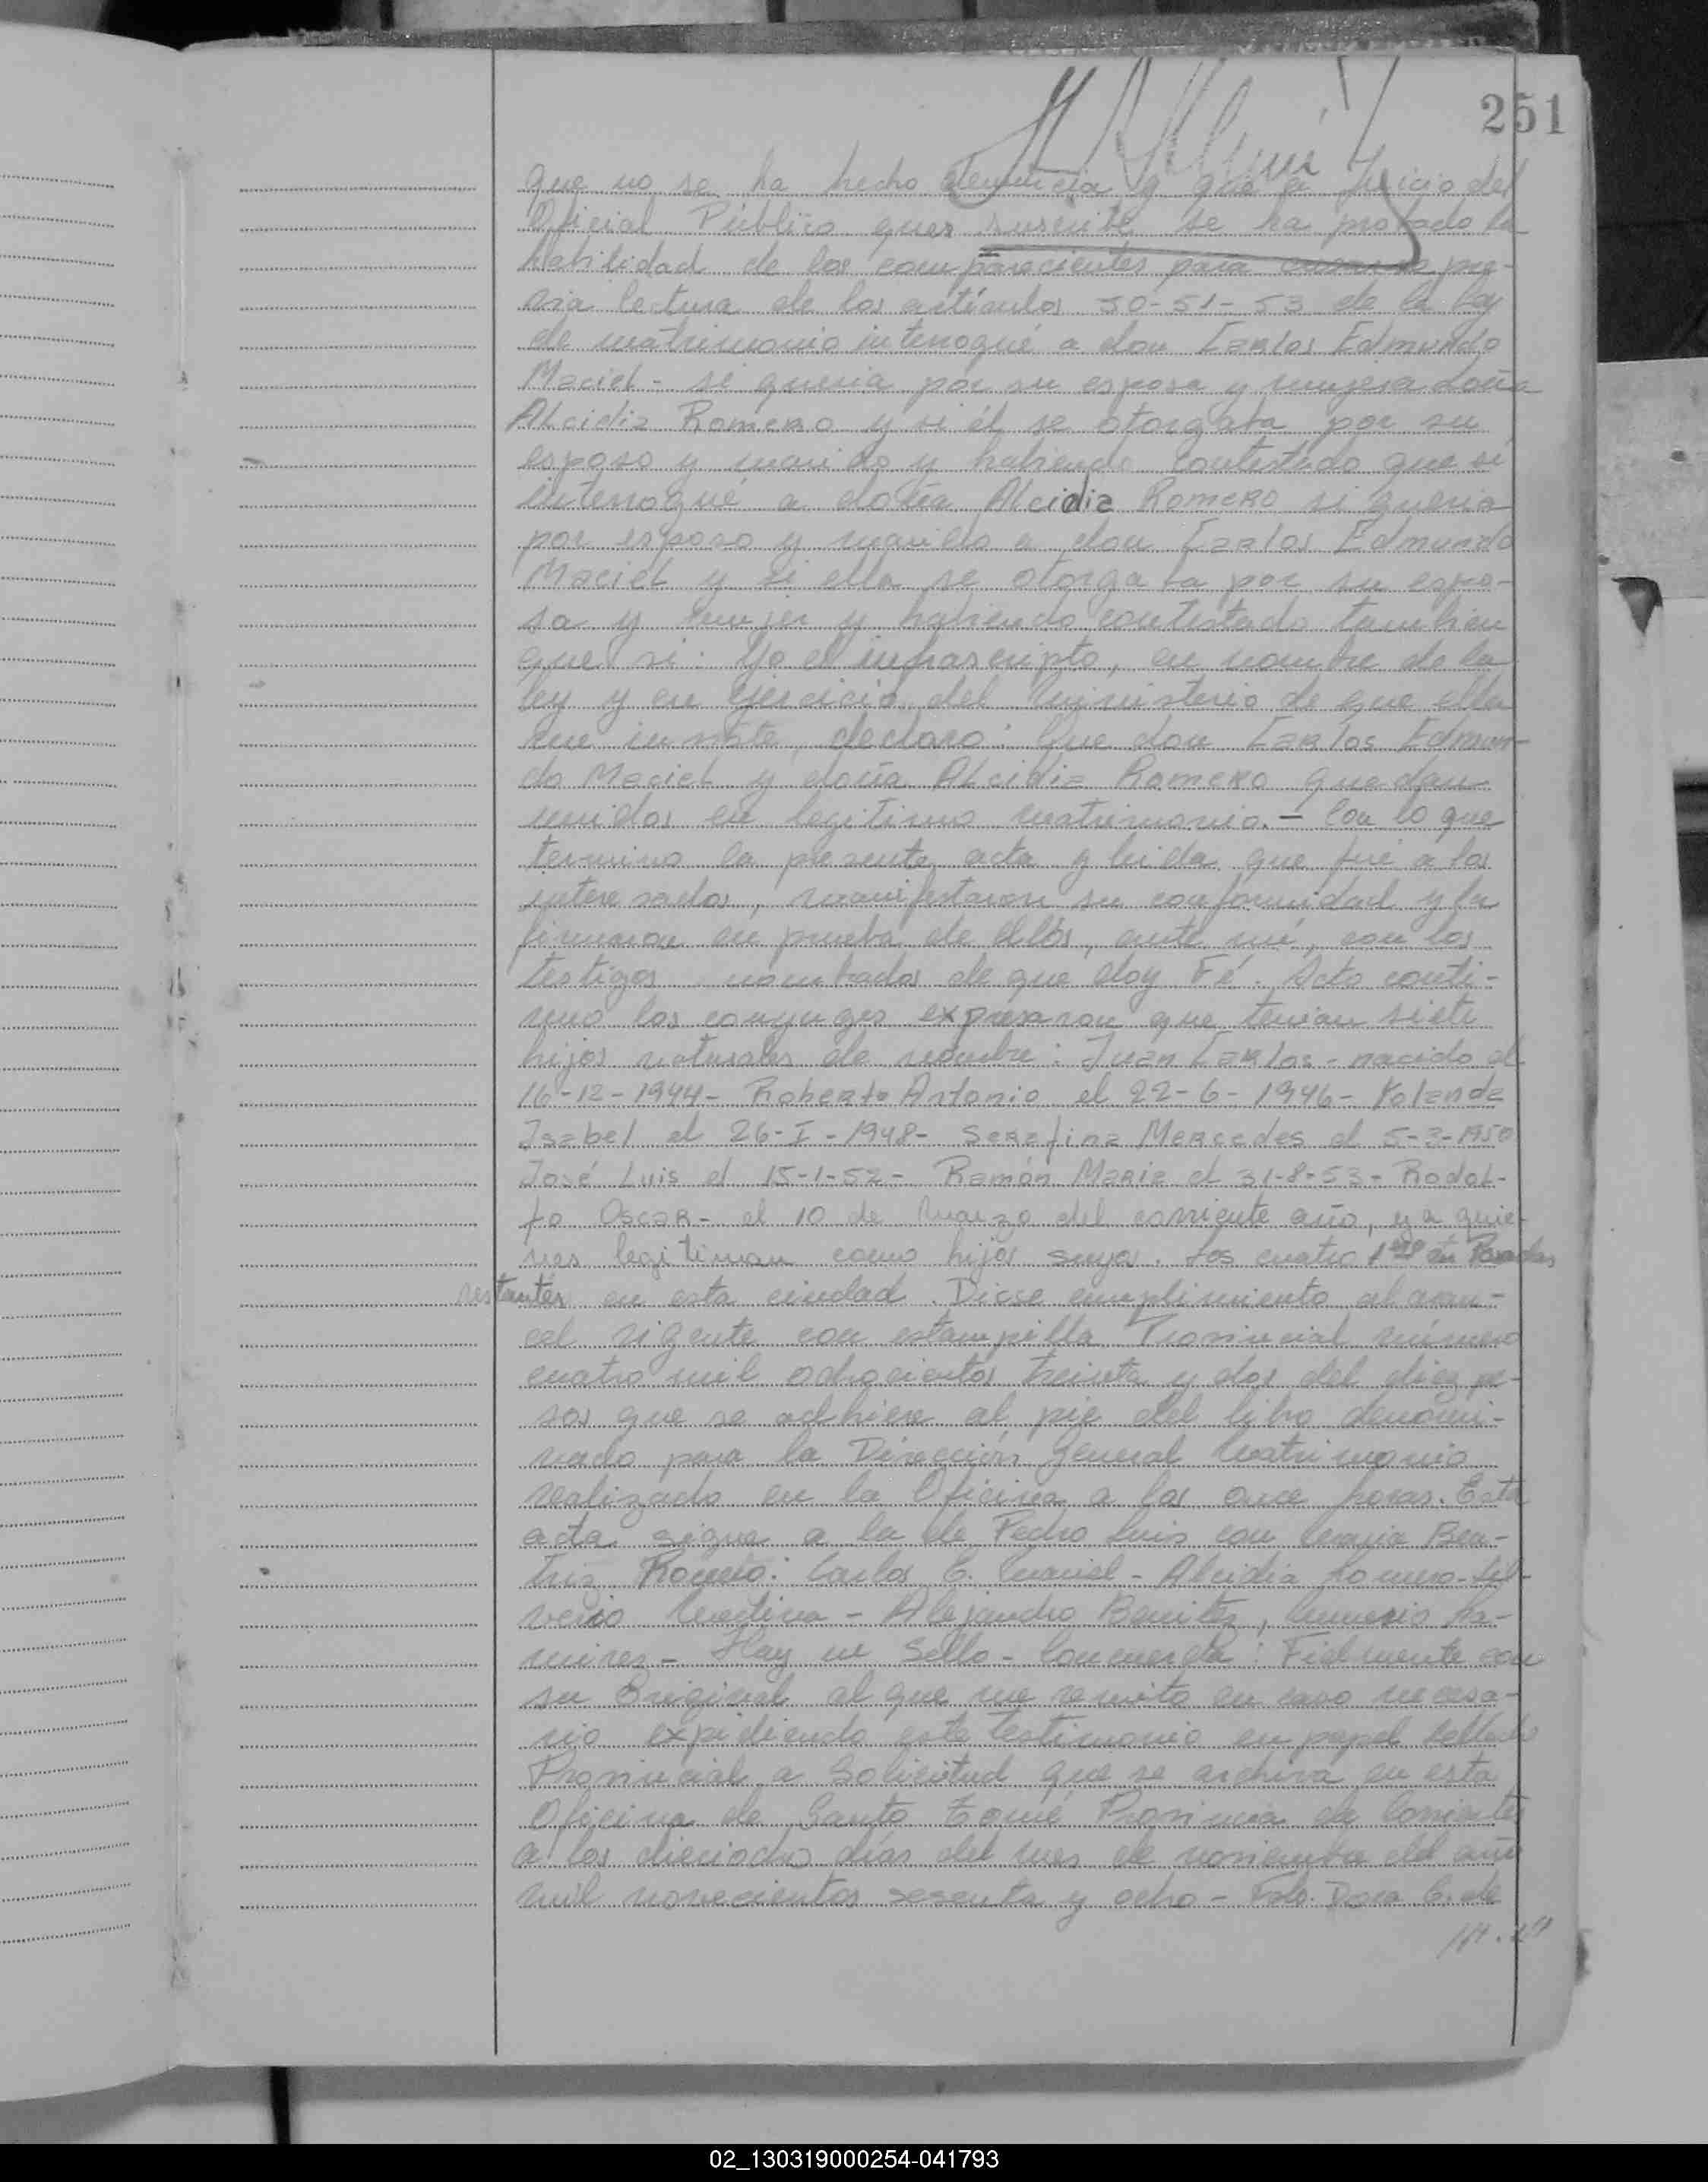 251
que no se ha hecho denuncia y que a juicio del
Oficial Público ques suscribe se ha probado la
habilidad de los comparecientes para casarse pre-
via lectura de los artículos 50-51-53 de la ley
de matrimonio interrogué a don Carlos Edmundo
Maciel - si queria por su esposa y mujer a doña
Alcidia Romero y si él se otorgaba por su
esposo y marido y habiendo contestado que si
interrogué a doña Alcidia Romero si queria
por esposo y marido a don Carlos Edmundo
Maciel y si ella se otorgaba por su espo-
sa y mujer y habiendo contestado tambien
que si: Yo el infrascripto, en nombre de la
ley y en ejercicio del ministerio de que ella
me inviste, declaro: Que don Carlos Edmun-
do Maciel y doña Alcidia Romero quedan
unidos en legitimo matrimonio. - Con lo que
termino la presente acta y leida que fué a los
interesados, manifestaron su conformidad y la
firmaron en prueba de ellos, ante mi, con los
testigos nombrados de que doy Fé. Acto conti-
nuo los conyuges expresaron que tenian siete
hijos naturales de nombre: Juan Carlos - nacido el
16-12-1944- Roberto Antonio el 22-6-1946- Yolanda
Isabel el 26-I-1948- Serafina Mercedes el 5-3-1950
José Luis el 15-1-52- Ramón Maria el 31-8-53- Rodol-
fo Oscar - el 10 de Marzo del corriente año, y a quie-
nes legitiman como hijos suyos. Los cuatro 1ros en Posadas
restantes en esta ciudad. Dicse cumplimiento al aran-
cel vigente con estampilla Provincial número
cuatro mil ochocientos treinta y dos del diez pe-
sos que se adhiere al pie del libro denomi-
nado para la Dirección General Matrimonio
realizado en la Oficina a las once horas. Esta
acta sigue a la de Pedro Luis con Bea-
triz Romero: Carlos E. Maciel - Alcidia Romero - Sil-
verio Medina - Alejandro Benitez, Numerio Ra-
mires - Hay un Sello - Concuerda: Fielmente con
su Original al que me remito en caso necesa-
rio expidiendo este testimonio en papel sellado
Provincial a Solicitud que se archiva en esta
Oficina de Santo Tomé Provincia de Corrientes
a los dieciocho días del mes de noviembre del año
mil novecientos sesenta y ocho - Fdo. Dora C. de
02_130319000254-041793